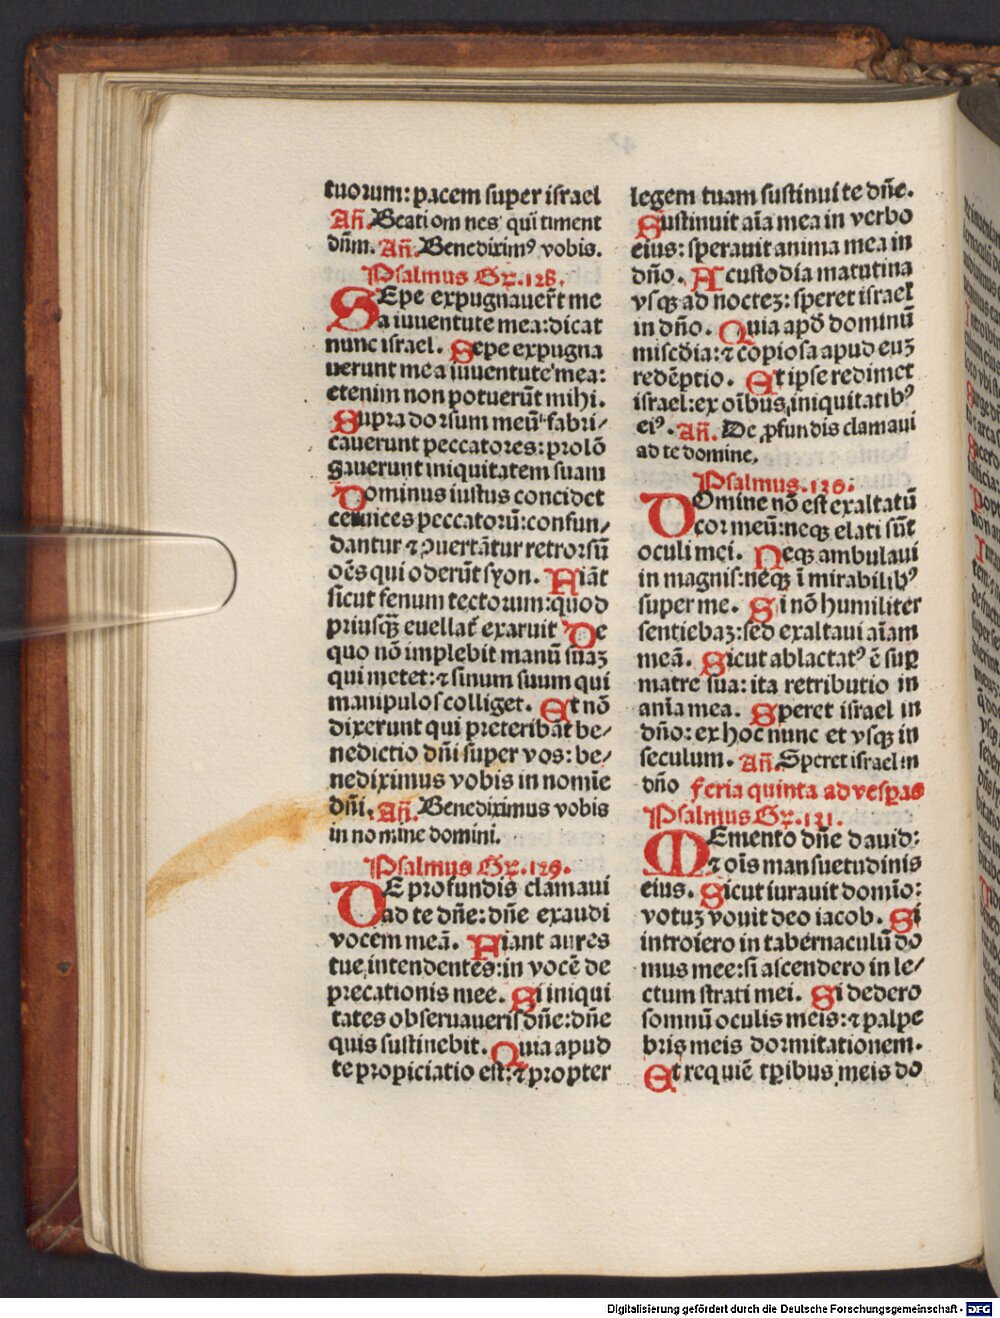 tuorum: pacem super israel
An̄. Beati om nes qui timent
dn̄m. An̄. Benediximꝰ vobis.
Psalmus Gx. 128.
SEpe expugnauer̄t me
a iuuentute mea: dicat
nunc israel. Sepe expugna
uerunt me a iuuentute mea:
etenim non potuerūt mihi.
Supra dorsum meū fabri/
cauerunt peccatores: prolō
gauerunt iniquitatem suam
Dominus iustus concidet
ceruices peccatorū: confun/
dantur ⁊ ꝯuertātur retrorsū
oēs qui oderūt syon. Fiāt
sicut fenum tectorum: quod
priusqꝫ euellat̄ exaruit De
quo nō implebit manū suaꝫ
qui metet: ⁊ sinum suum qui
manipulos colliget. Et nō
dixerunt qui preteribāt be/
nedictio dn̄i super vos: be/
nediximus vobis in nomīe
dn̄i. An̄. Benediximus vobis
in nomine domini.
Psalmus Gx. 129.
DE profundis clamaui
ad te dn̄e: dn̄e exaudi
vocem meā. Fiant aures
tue intendentes: in vocē de
precationis mee. Si iniqui
tates obseruaueris dn̄e: dn̄e
quis sustinebit. Quia apud
te propiciatio est: ⁊ propter
legem tuam sustinui te dn̄e.
Sustinuit aīa mea in verbo
eius: sperauit anima mea in
dn̄o. A custodia matutina
vsqꝫ ad nocteꝫ: speret israel
in dn̄o. Quia apd̄ dominū
miscd̄ia: ⁊ copiosa apud euꝫ
redēptio. Et ipse redimet
israel: ex oībus iniquitatibꝰ
eiꝰ. An̄. De ꝓfundis clamaui
ad te domine.
Psalmus. 130.
DOmine nō est exaltatū
cor meū: neqꝫ elati sūt
oculi mei. Neqꝫ ambulaui
in magnis: neqꝫ ī mirabilibꝰ
super me. Si nō humiliter
sentiebaꝫ: sed exaltaui aīam
meā. Sicut ablactatꝰ ē sup̄
matre sua: ita retributio in
anīa mea. Speret israel in
dn̄o: ex hoc nunc et vsqꝫ in
seculum. An̄. Speret israel in
dn̄o feria quinta ad vesꝑas
Psalmus Gx. 131.
MEmento dn̄e dauid:
⁊ oīs mansuetudinis
eius. Sicut iurauit domīo:
votuꝫ vouit deo iacob. Si
introiero in tabernaculū do
mus mee: si ascendero in le/
ctum strati mei. Si dedero
somnū oculis meis: ⁊ palpe
bris meis dormitationem.
Et requiē tꝑibus meis do
Digitalisierung gefördert durch die Deutsche Forschungsgemeinschaft - DFG